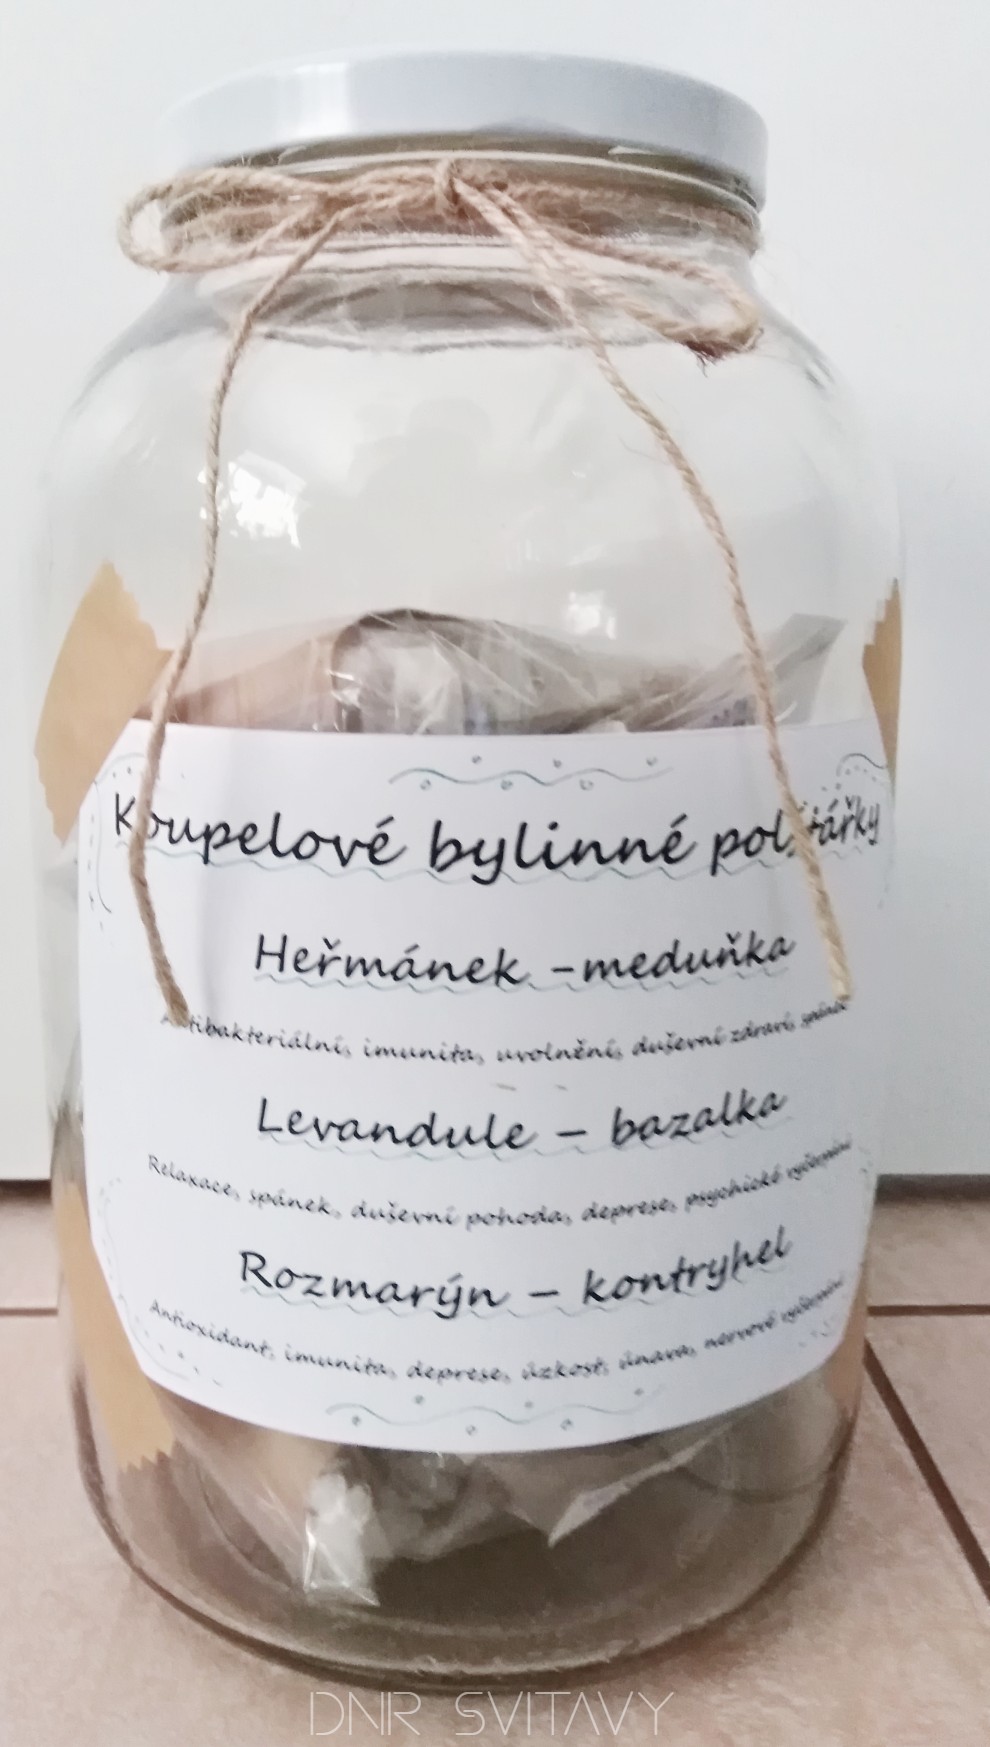 Koupelové bylinné polštářky
Heřmánek -meduňka
Antibakteriální, imunita, uvolnění, duševní zdraví, spánek
Levandule - bazalka
Relaxace, spánek, duševní pohoda, deprese, psychické vyčerpání
Rozmarýn - kontryhel
Antioxidant, imunita, deprese, úzkost, únava, nervové vyčerpání
DNR SVITAVY